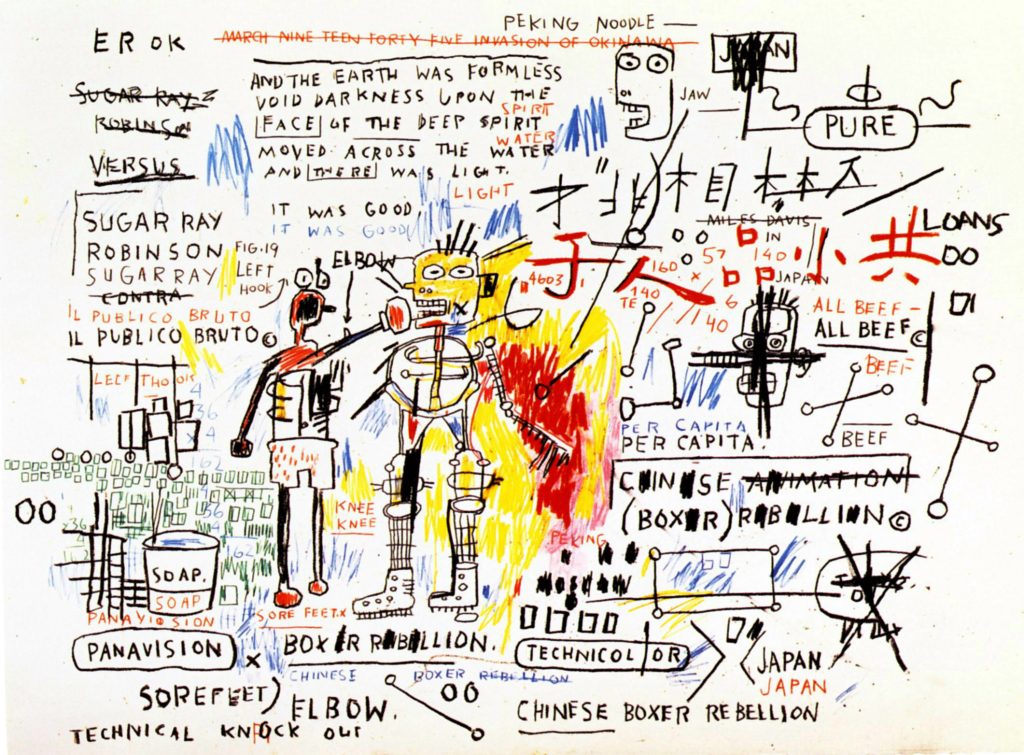 EROK
PEKING NOODLE
MARCH NINE TEEN FORTY FIVE INVASION OF OKINAWA
SUGAR RAY
ROBINSON
VERSUS
AND THE EARTH WAS FORMLESS
VOID DARKNESS UPON THE
SPIRIT
FACE OF THE DEEP SPIRIT
WATER
MOVED ACROSS THE WATER
AND THERE WAS LIGHT.
LIGHT
IT WAS GOOD
IT WAS GOOD
JAW
JAPAN
PURE
SUGAR RAY
ROBINSON
SUGAR RAY
CONTRA
IL PUBLICO BRUTO
IL PUBLICO BRUTO©
FIG.19
LEFT
HOOK
ELBOW
MILES DAVIS
IN
JAPAN
LOANS
OO
人品小共
4603
57
140
160
x
6
140
TE
40
ALL BEEF-
ALL BEEF©
BEEF
BEEF
PER CAPITA
PER CAPITA.
CHINESE ANIMATION
(BOXER) REBELLION©
4
36
4
162
56
4
162
x36
4
OO
KNEE
KNEE
PEKING
MOSCOW
SOAP.
SOAP
PANAVISION
SORE FEET.X
PANAVISION
x
BOXER REBELLION.
CHINESE BOXER REBELLION
TECHNICOLOR
JAPAN
JAPAN
SOREFEET)
ELBOW.
OO
CHINESE BOXER REBELLION
TECHNICAL KNOCK OUT